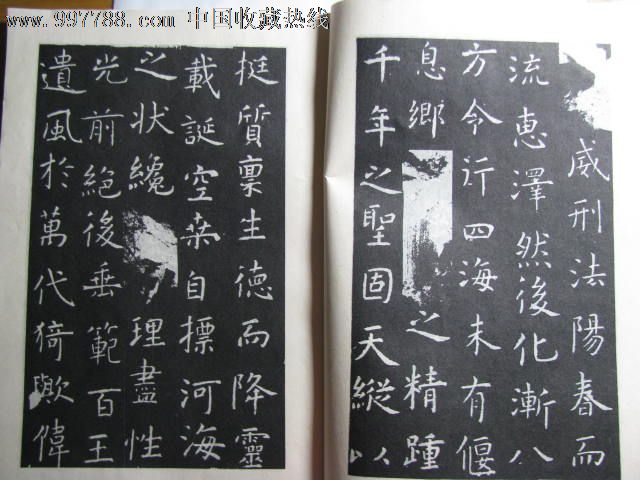 www.997788.com 中国收藏热线
威刑法陽春而
流惠澤然後化漸八
方令行四海未有偃
息鄉之精踵
千年之聖固天縱以
挺質稟生德而降靈
載誕空桒自標河海
之狀纔理盡性
光前絕後垂範百王
遺風於萬代猗歟偉